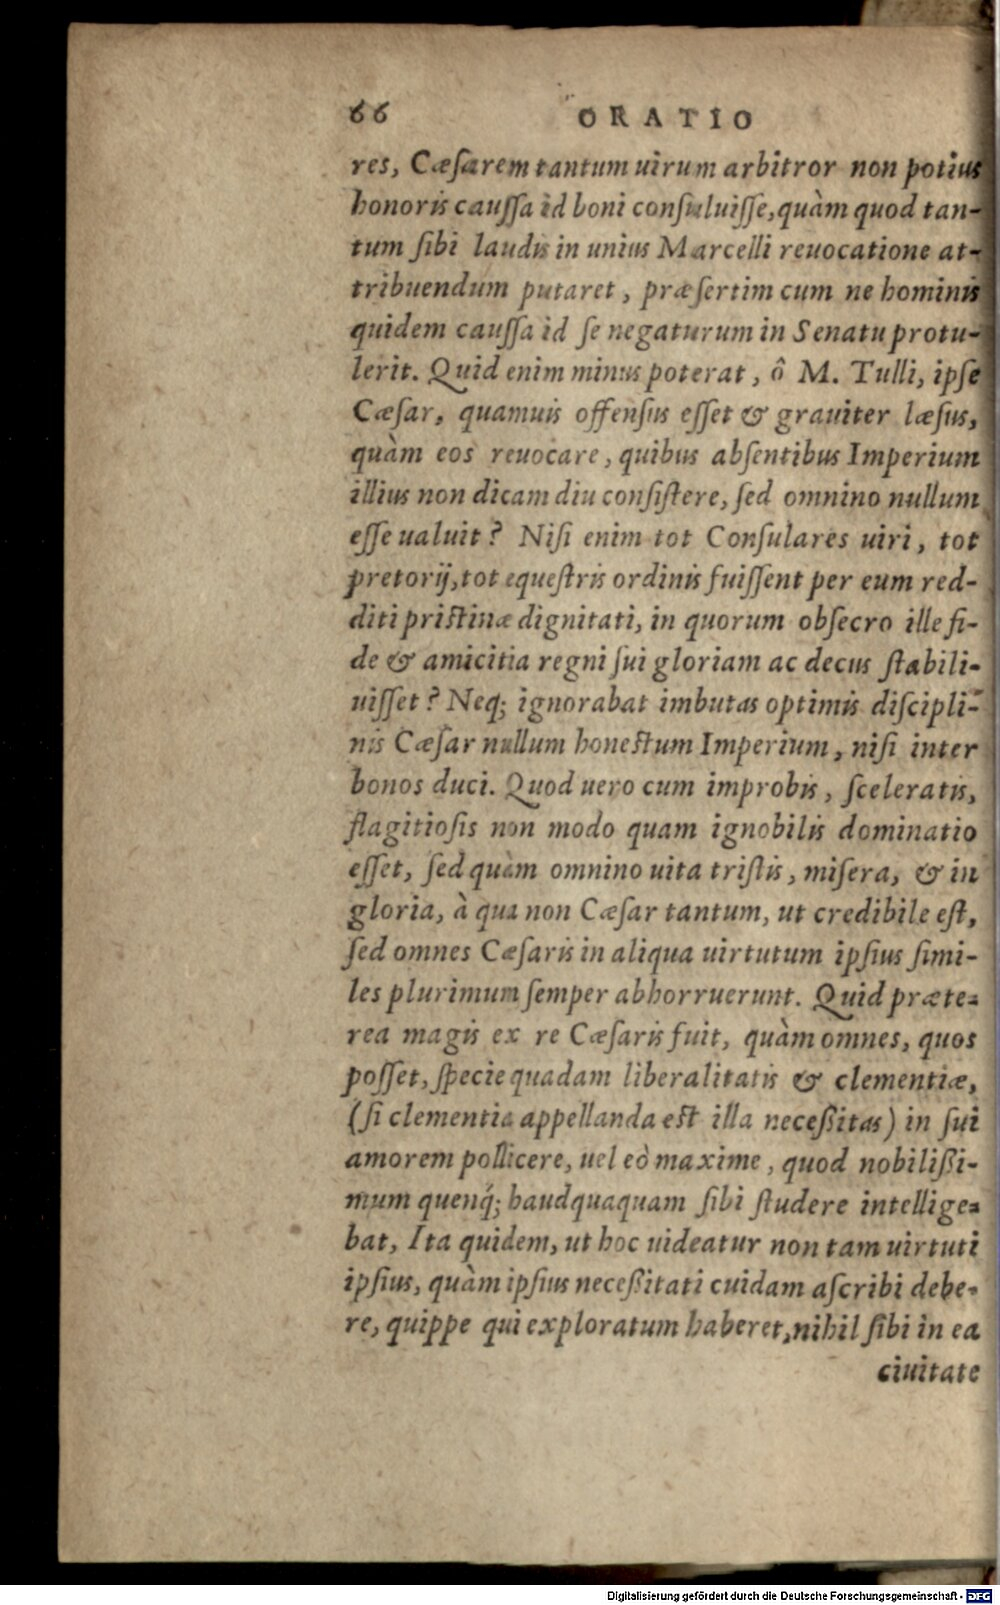 66 ORATIO
res, Cæſarem tantum uirum arbitror non potius
honoris cauſſa id boni conſuluiſſe, quàm quod tan-
tum ſibi laudis in unius Marcelli reuocatione at-
tribuendum putaret, præſertim cum ne hominis
quidem cauſſa id ſe negaturum in Senatu protu-
lerit. Quid enim minus poterat, ô M. Tulli, ipſe
Cæſar, quamuis offenſus eſſet & grauiter læſus,
quàm eos reuocare, quibus abſentibus Imperium
illius non dicam diu conſiſtere, ſed omnino nullum
eſſe ualuit? Niſi enim tot Conſulares uiri, tot
pretorij, tot equeſtris ordinis fuiſſent per eum red-
diti priſtinæ dignitati, in quorum obſecro ille fi-
de & amicitia regni ſui gloriam ac decus ſtabili-
uiſſet? Neq; ignorabat imbutas optimis diſcipli-
nis Cæſar nullum honeſtum Imperium, niſi inter
bonos duci. Quod uero cum improbis, ſceleratis,
flagitioſis non modo quam ignobilis dominatio
eſſet, ſed quàm omnino uita triſtis, miſera, & in
gloria, à qua non Cæſar tantum, ut credibile eſt,
ſed omnes Cæſaris in aliqua uirtutum ipſius ſimi-
les plurimum ſemper abhorruerunt. Quid præte-
rea magis ex re Cæſaris fuit, quàm omnes, quos
poſſet, ſpecie quadam liberalitatis & clementiæ,
(ſi clementia appellanda eſt illa neceßitas) in ſui
amorem pollicere, uel eò maxime, quod nobilißi-
mum quenq́; haudquaquam ſibi ſtudere intellige-
bat, Ita quidem, ut hoc uideatur non tam uirtuti
ipſius, quàm ipſius neceßitati cuidam aſcribi debe-
re, quippe qui exploratum haberet, nihil ſibi in ea
ciuitate
Digitalisierung gefördert durch die Deutsche Forschungsgemeinschaft - DFG